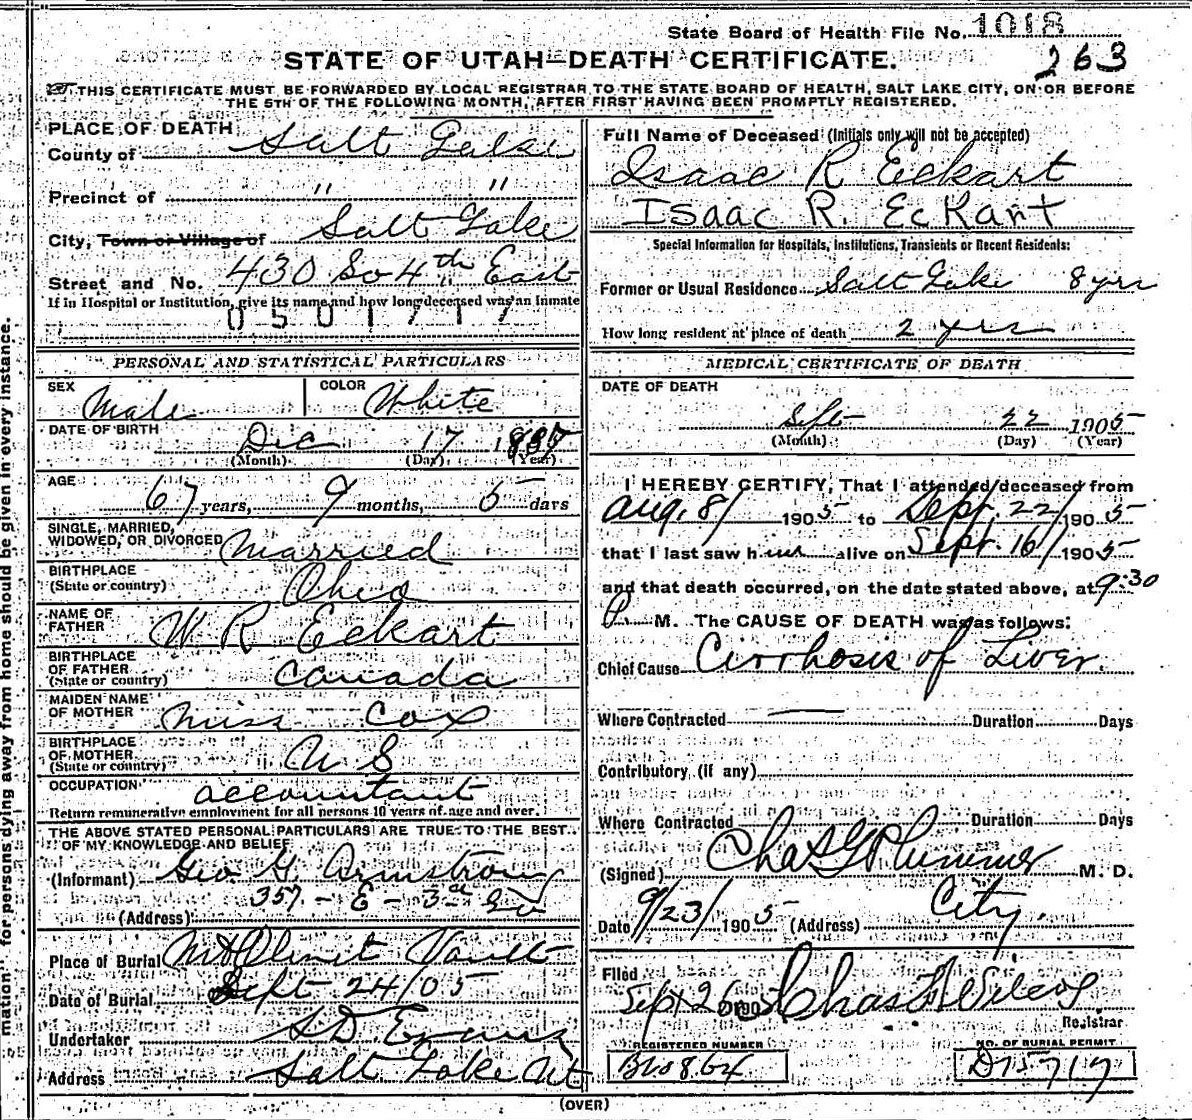 State Board of Health File No. 1018
263
STATE OF UTAH—DEATH CERTIFICATE.
THIS CERTIFICATE MUST BE FORWARDED BY LOCAL REGISTRAR TO THE STATE BOARD OF HEALTH, SALT LAKE CITY, ON OR BEFORE
THE 5TH OF THE FOLLOWING MONTH, AFTER FIRST HAVING BEEN PROMPTLY REGISTERED.
PLACE OF DEATH
County of Salt Lake
Precinct of " "
City, Town or Village of Salt Lake
Street and No. 430 So 4th East
If in Hospital or Institution, give its name and how long deceased was an inmate
0501717
PERSONAL AND STATISTICAL PARTICULARS
SEX Male
COLOR White
DATE OF BIRTH
Dec 17
(Month) (Day) (Year)
AGE
67 years, 9 months, 5 days
SINGLE, MARRIED,
WIDOWED, OR DIVORCED Married
BIRTHPLACE
(State or country) Ohio
NAME OF
FATHER W R Eckart
BIRTHPLACE
OF FATHER
(State or country) Canada
MAIDEN NAME
OF MOTHER Miss Cox
BIRTHPLACE
OF MOTHER
(State or country) U S
OCCUPATION accountant
Return remunerative employment for all persons 10 years of age and over.
THE ABOVE STATED PERSONAL PARTICULARS ARE TRUE TO THE BEST
OF MY KNOWLEDGE AND BELIEF
(Informant) Geo. G. Armstrong
357 - E - 3rd So
(Address)
Place of Burial Mt Olivet Vault
Date of Burial Sept 24/05
Undertaker S D Evans
Address Salt Lake Ut
Full Name of Deceased (Initials only will not be accepted)
Isaac R Eckart
Isaac R. Eckart
Special Information for Hospitals, Institutions, Transients or Recent Residents:
Former or Usual Residence Salt Lake 8 yrs
How long resident at place of death 2 yrs
MEDICAL CERTIFICATE OF DEATH
DATE OF DEATH
Sept 22 1905
(Month) (Day) (Year)
I HEREBY CERTIFY, That I attended deceased from
Aug. 8/ 1905 to Sept. 22/ 1905
that I last saw him alive on Sept. 16/ 1905
and that death occurred, on the date stated above, at 9:30
P. M. The CAUSE OF DEATH was as follows:
Chief Cause Cirrhosis of Liver.
Where Contracted — Duration Days
Contributory (if any)
Where Contracted Duration Days
(Signed) Chas G Plummer M. D.
Date 9/23/ 1905 (Address) City.
Filed
Sept 26 1905 Chas Wilcox
Registrar
REGISTERED NUMBER
NO. OF BURIAL PERMIT
D15717
(OVER)
mation" for persons dying away from home should be given in every instance.